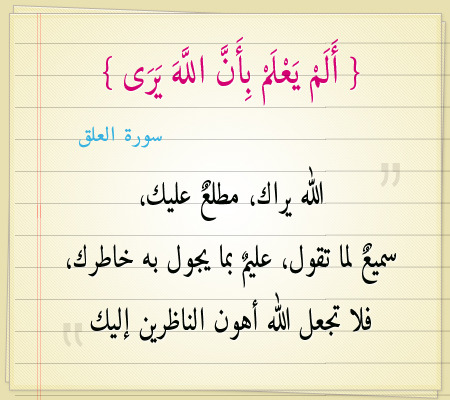 { أَلَمْ يَعْلَمْ بِأَنَّ اللَّهَ يَرَى }
سورة العلق
الله يراك، مطلعٌ عليك،
سميعٌ لما تقول، عليمٌ بما يجول به خاطرك،
فلا تجعل الله أهون الناظرين إليك